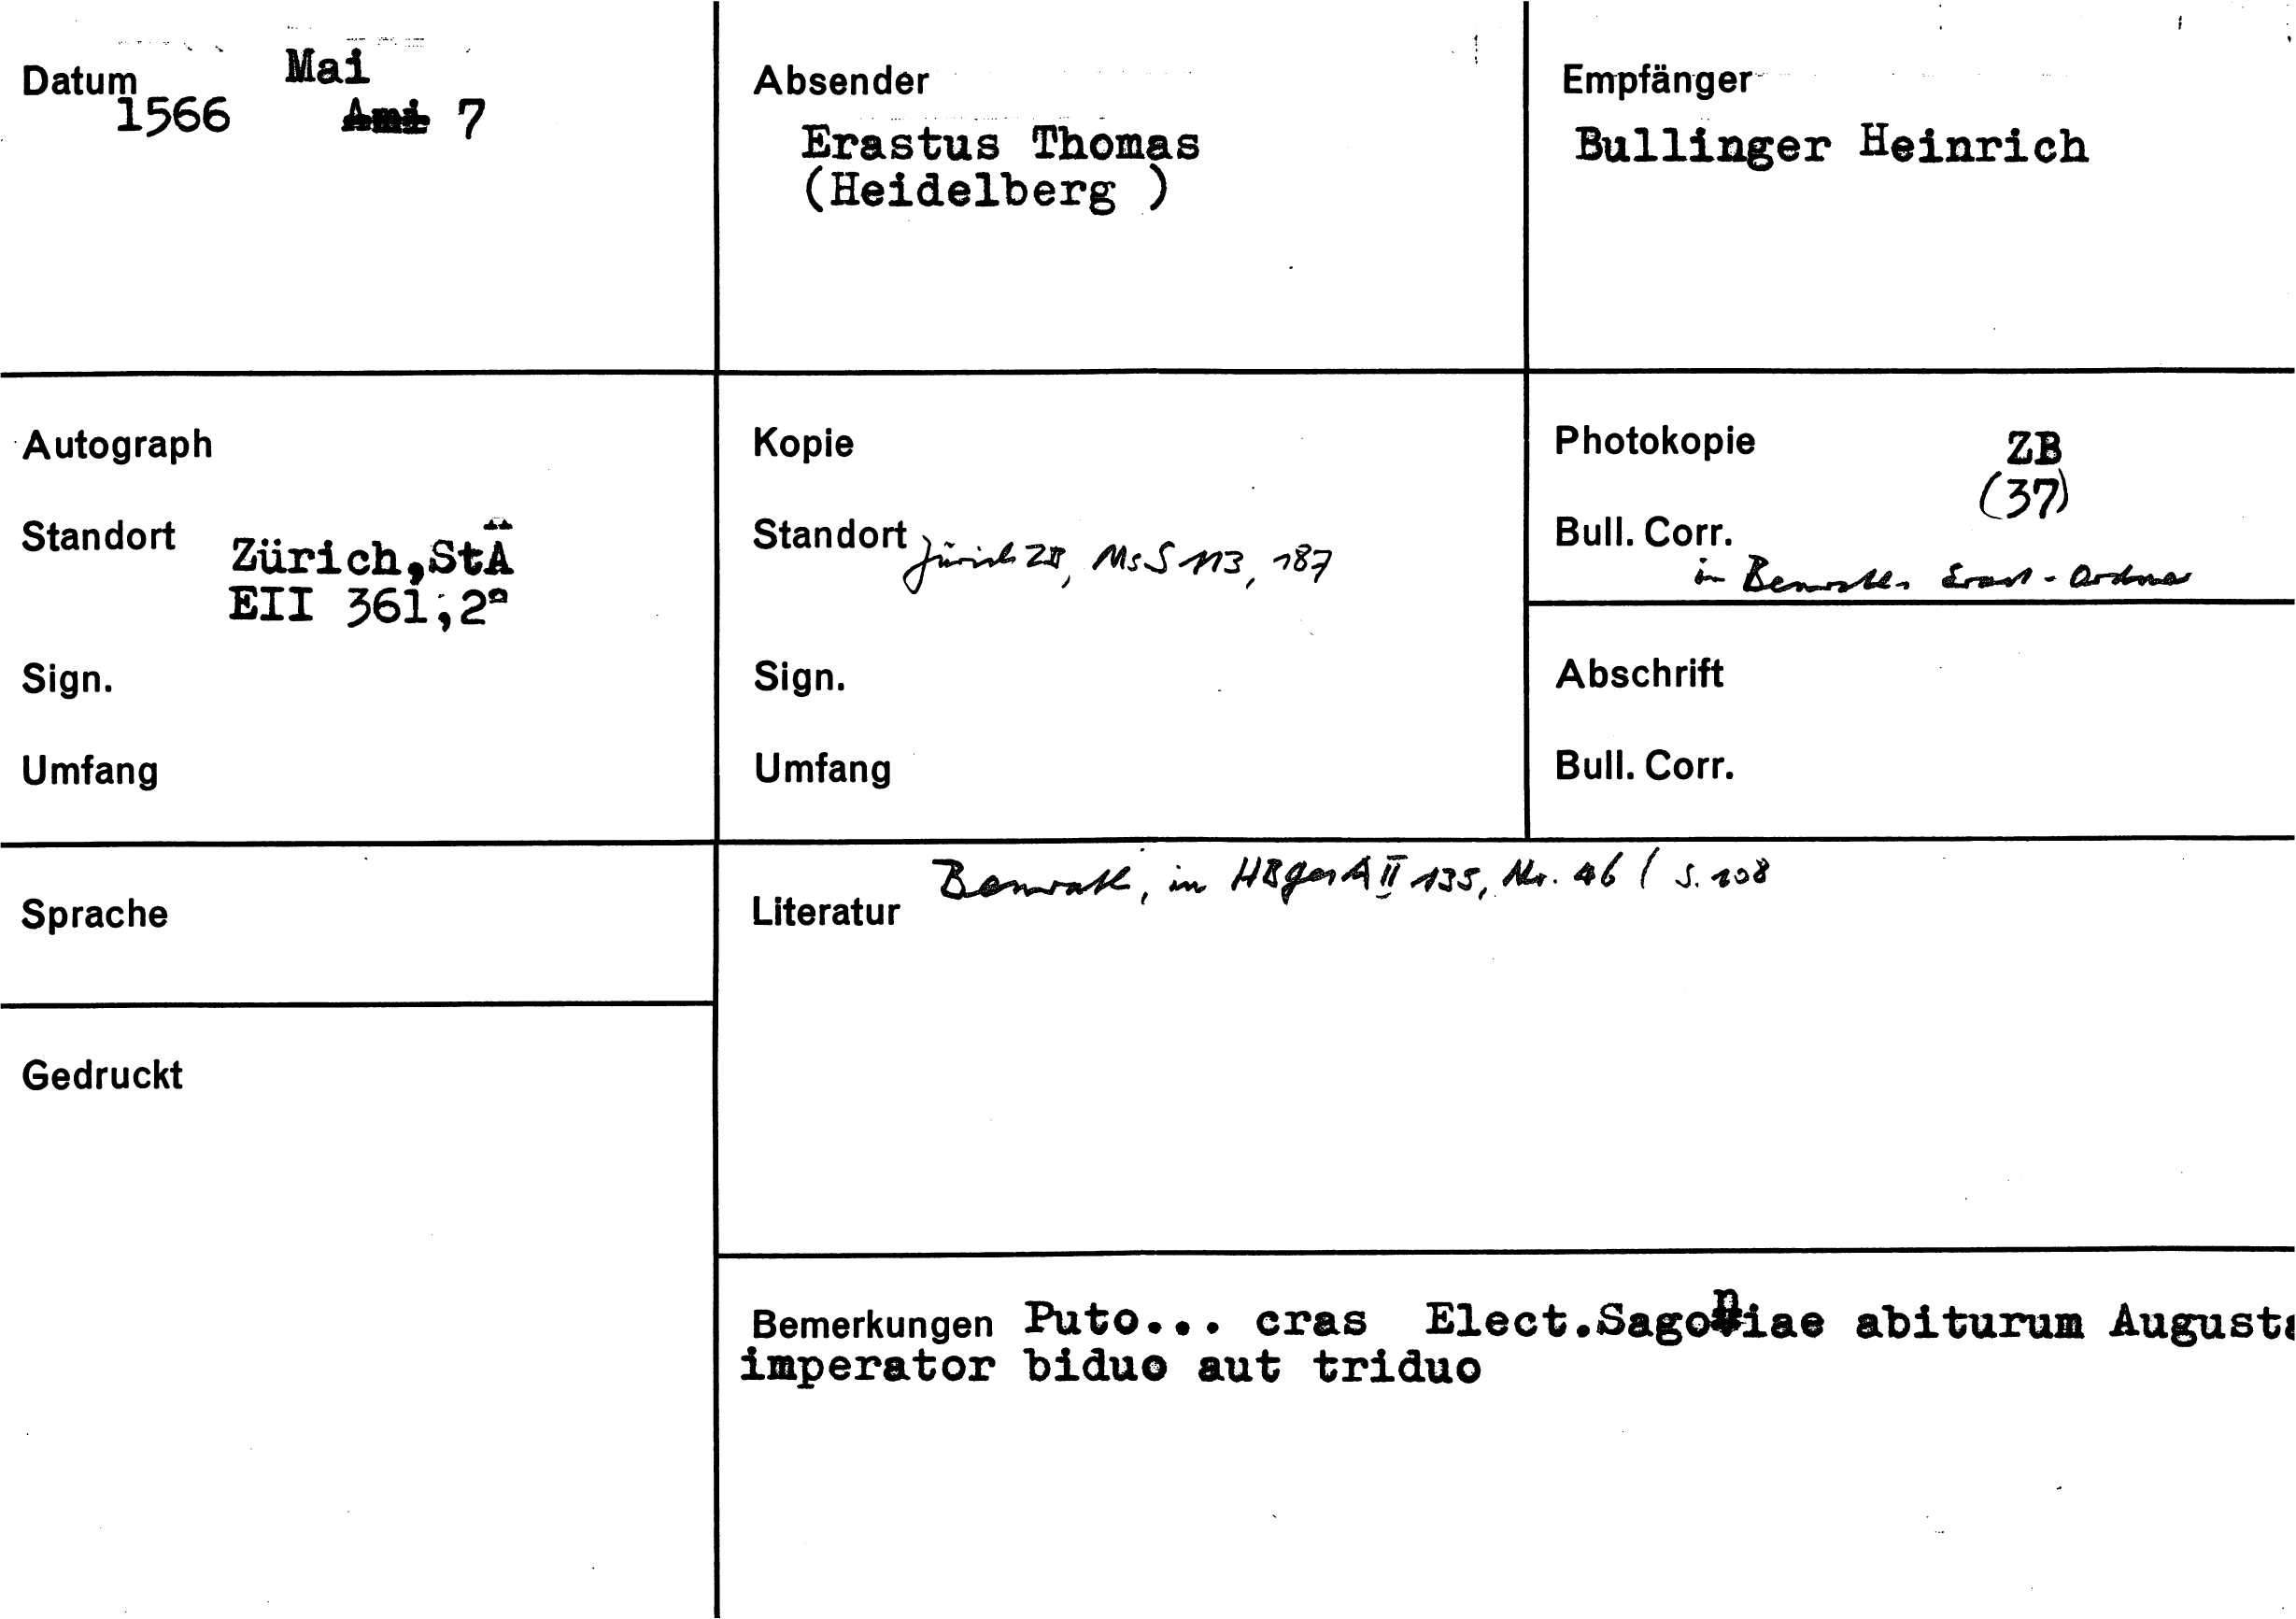 Datum
Mai
1566 Ami 7
Absender
Erastus Thomas
(Heidelberg )
Empfänger
Bullinger Heinrich
Autograph
Standort Zürich,StA
EII 361,2a
Sign.
Umfang
Kopie
Standort Zürich ZB, Ms S 113, 187
Sign.
Umfang
Photokopie ZB
(37)
Bull. Corr.
in Benraths Erast-Ordner
Abschrift
Bull. Corr.
Sprache
Literatur Benrath, in HBgesA II 135, Nr. 46 / S. 108
Gedruckt
Bemerkungen Puto... cras Elect.Sagoniae abiturum Augusta
imperator biduo aut triduo